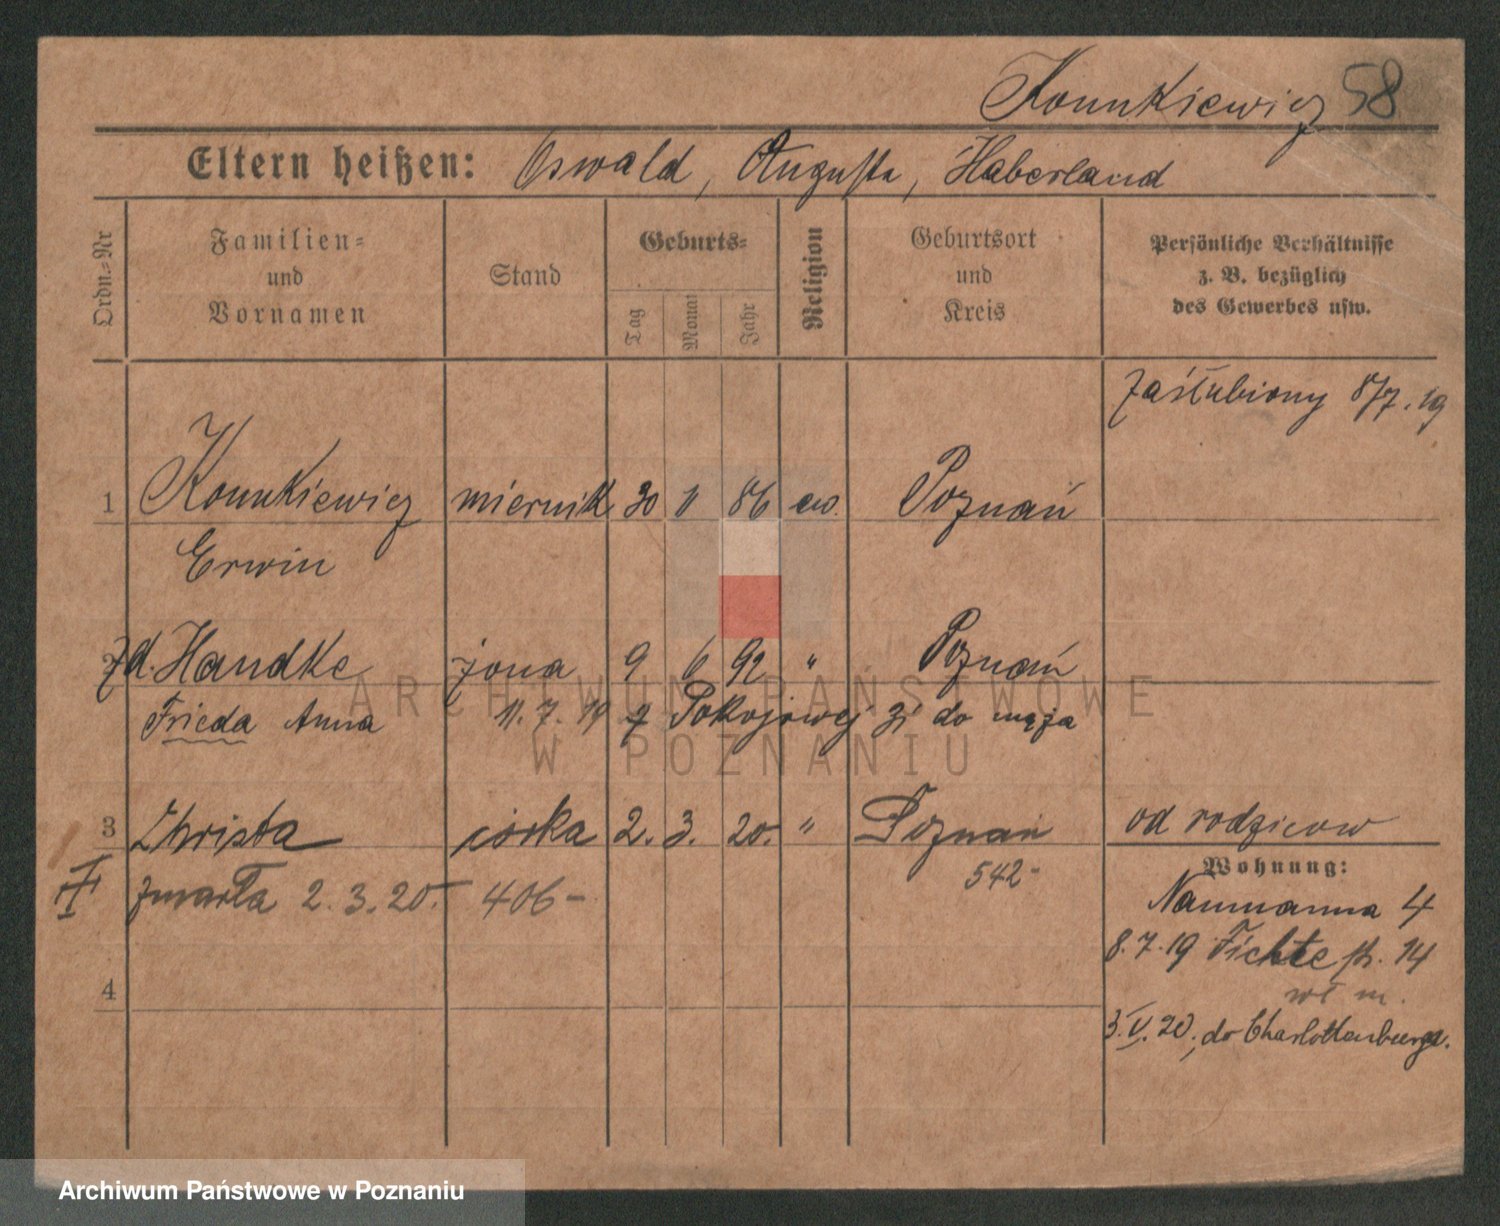 Konnkiewicz 58
Eltern heißen: Oswald, Augusta, Haberland
Ordn.-Nr
Familien-
und
Vornamen
Stand
Geburts-
Tag
Monat
Jahr
Religion
Geburtsort
und
Kreis
Persönliche Verhältnisse
z. B. bezüglich
des Gewerbes usw.
zaślubiony 8/7. 19
1 Konnkiewicz miernik 30 11 86 ew. Poznań
Erwin
2 zd. Handke żona 9 6 92 " Poznań
Frieda Anna 11. 7. 19 z Pokojowej do męża
3 Christa córka 2. 3. 20. " Poznań od rodziców
zmarła 2. 3. 20. 406- 542-
4
Wohnung:
Naumanna 4
8. 7. 19 Fichtestr. 14
3. V. 20. do Charlottenburga.
ARCHIWUM PAŃSTWOWE
W POZNANIU
Archiwum Państwowe w Poznaniu